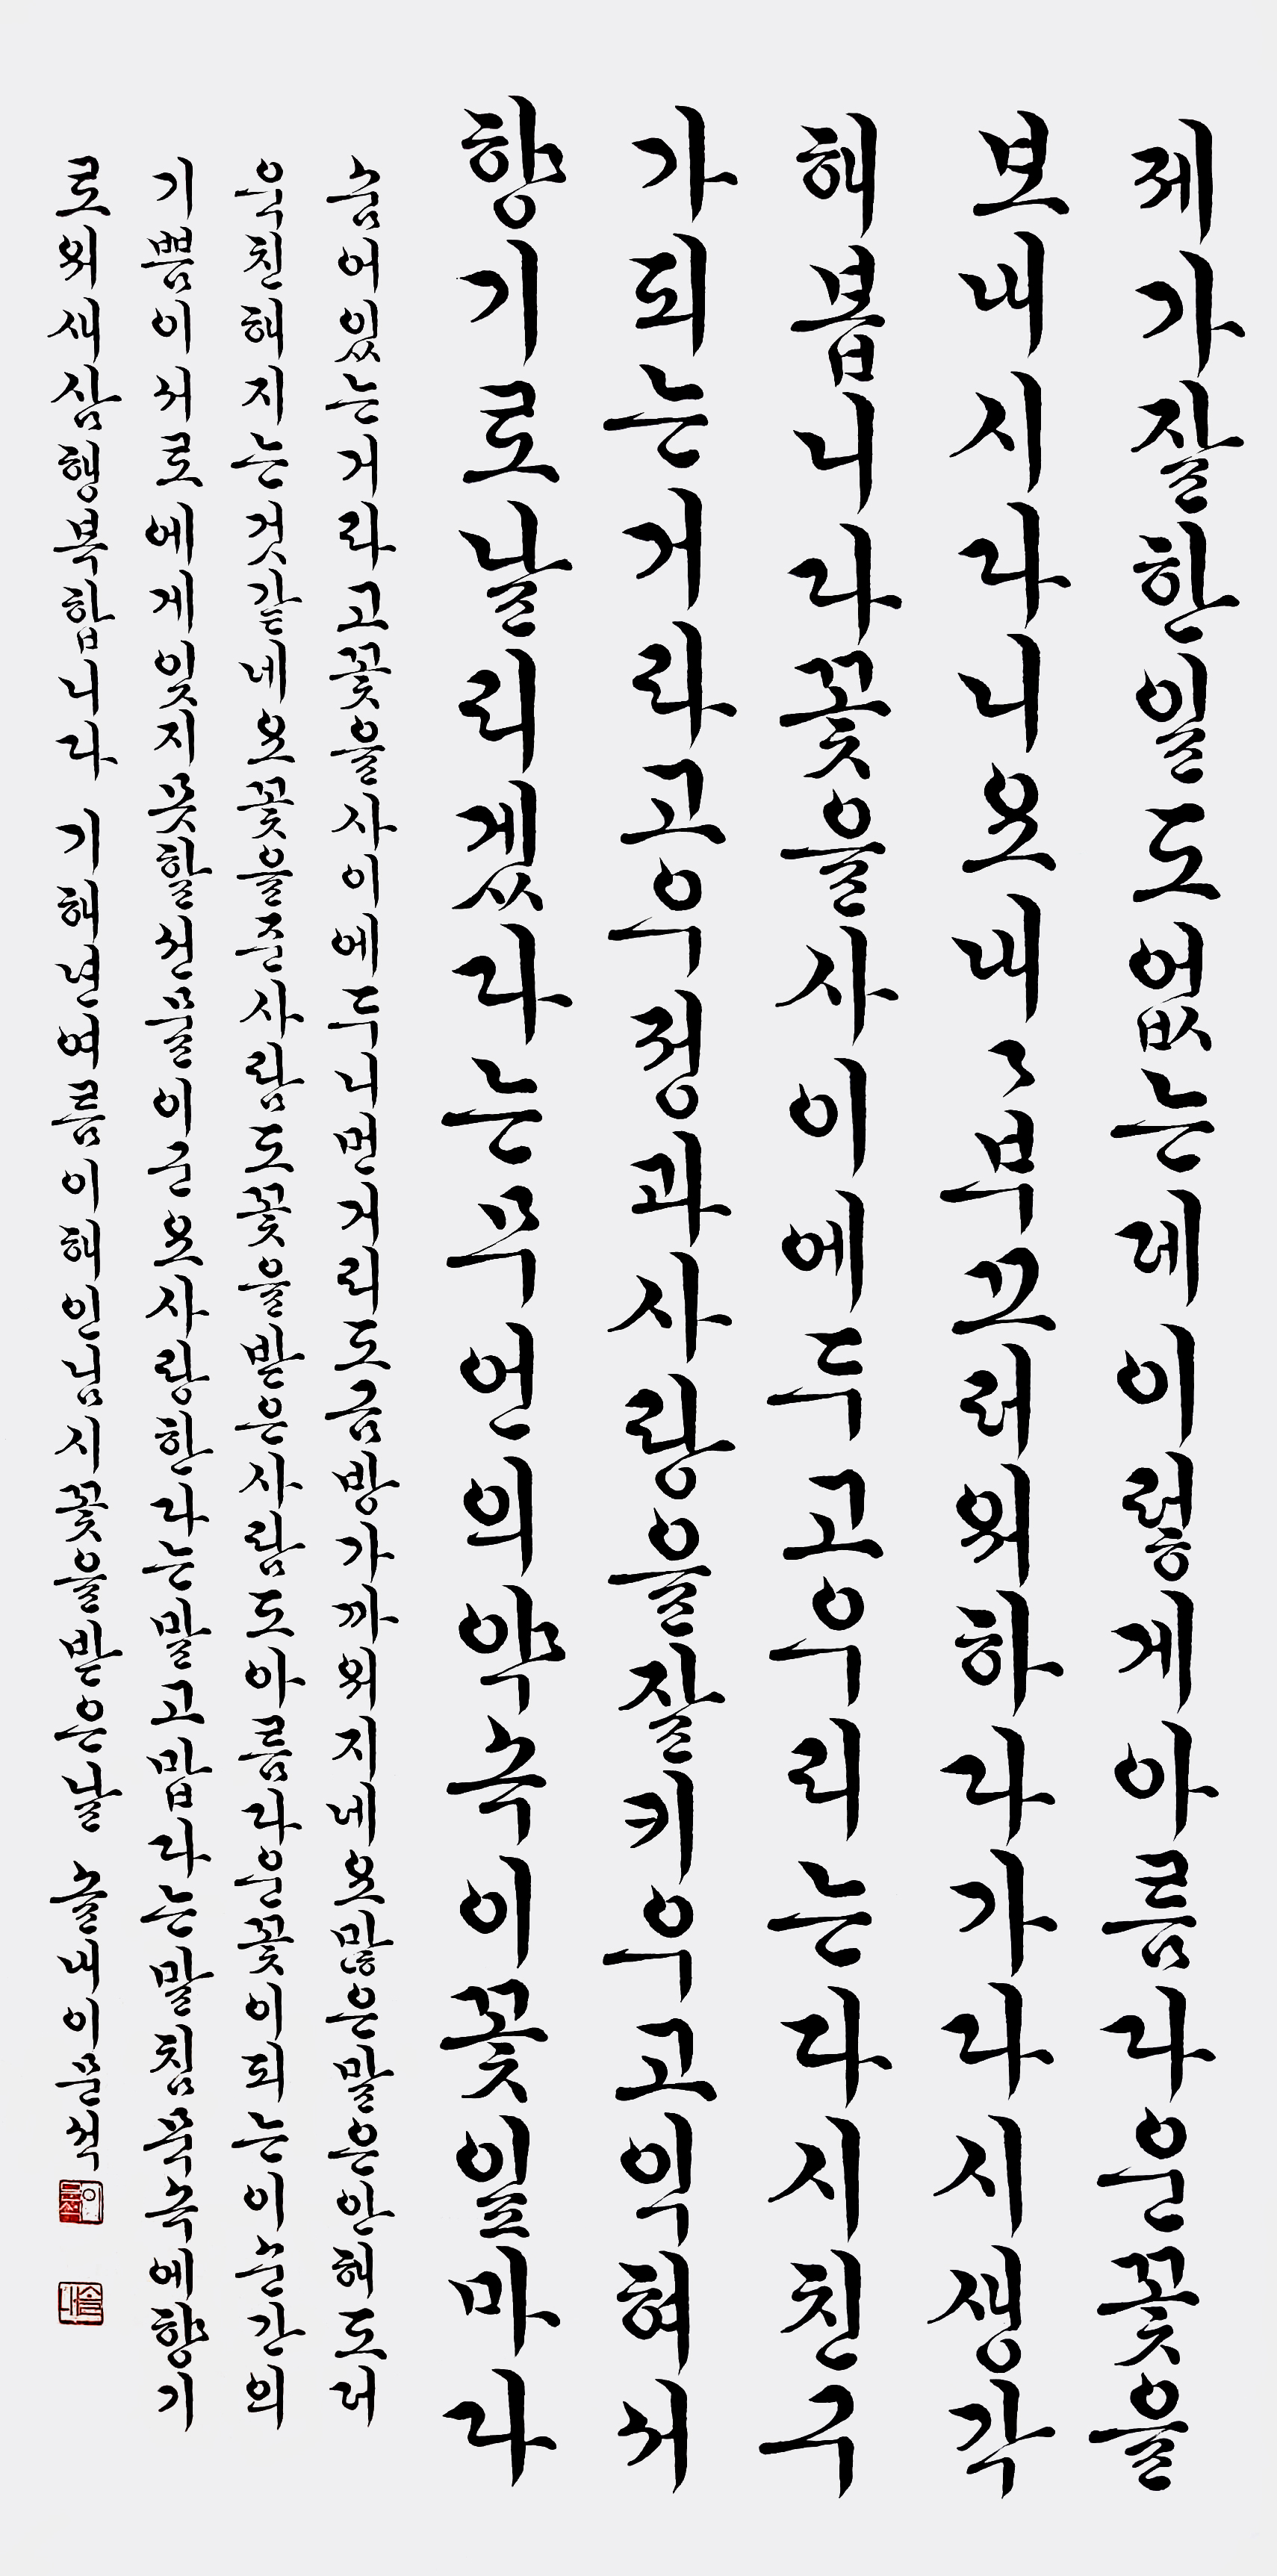 제가잘한일도없는데이렇게아름다운꽃을
보내시다니요내〻부끄러워하다가다시생각
해봅니다꽃을사이에두고우리는다시친구
가되는거라고우정과사랑을잘키우고익혀서
향기로날리겠다는무언의약속이꽃잎마다
숨어있는거라고꽃을사이에두니먼거리도금방가까워지네요많은말은안해도더
욱친해지는것같네요꽃을준사람도꽃을받은사람도아름다운꽃이되는이순간의
기쁨이서로에게잊지못할선물이군요사랑한다는말고맙다는말침묵속에향기
로워새삼행복합니다 기해년여름이해인님시꽃을받은날 솔내이문석